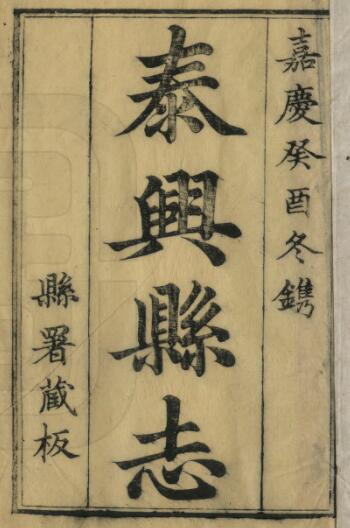 嘉慶癸酉冬鐫
泰興縣志
縣署蔵板